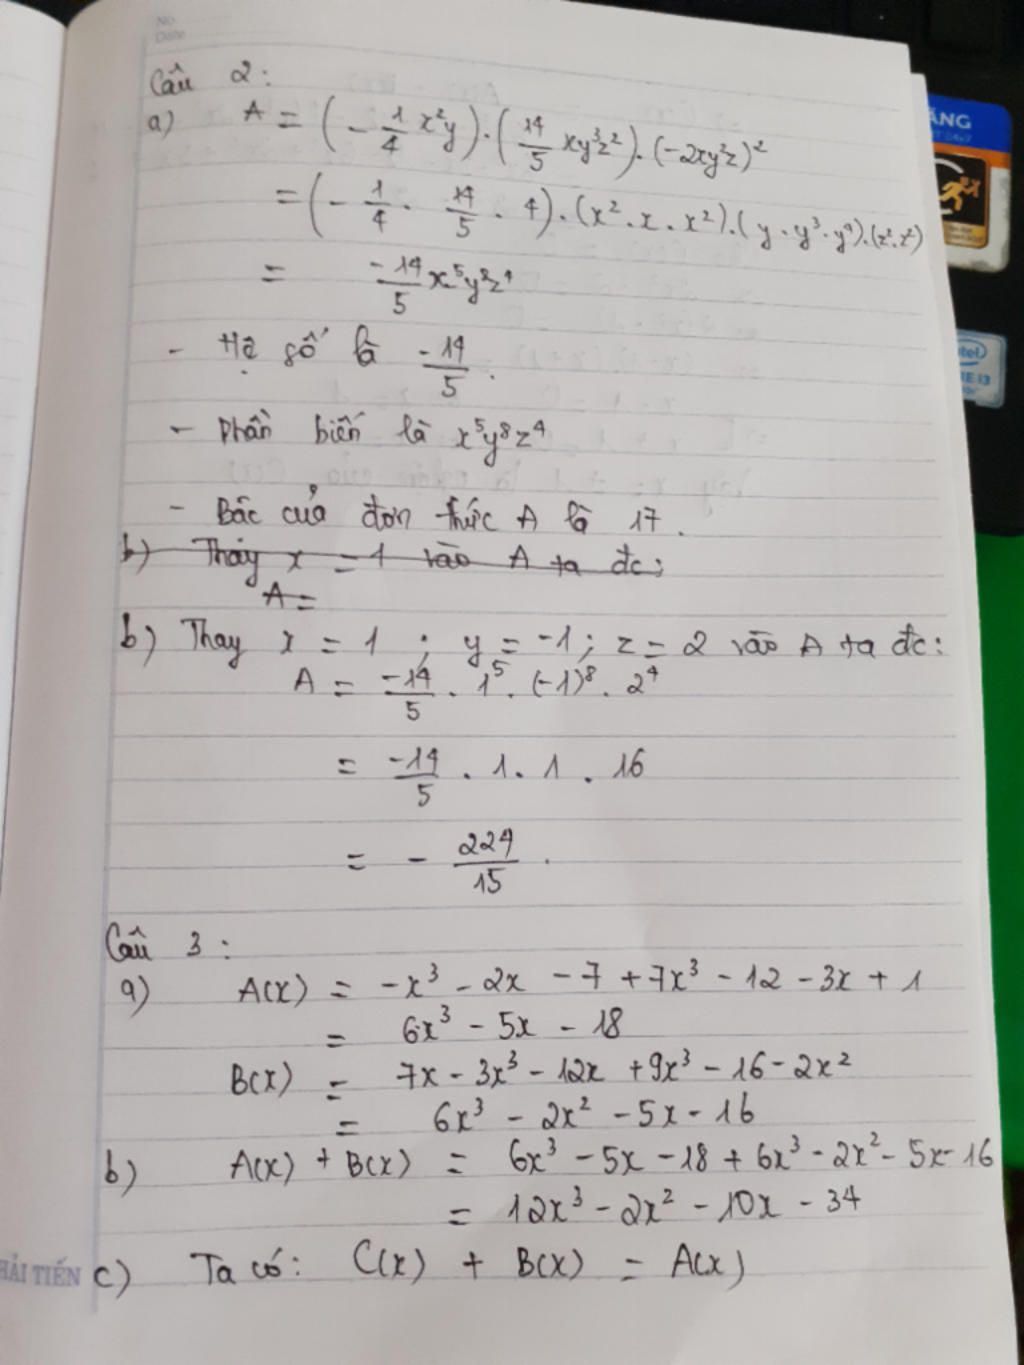 No.
Date
Câu 2:
a) A = (- 1/4 x²y) . (14/5 xy³z²) . (-2xy²z)²
= (- 1/4 . 14/5 . 4) . (x² . x . x²) . (y . y³ . y⁴) . (z² . z²)
= -14/5 x⁵y⁸z⁴
- Hệ số là -14/5 .
- Phần biến là x⁵y⁸z⁴
- Bậc của đơn thức A là 17.
b) Thay x = 1 vào A ta đc:
A =
b) Thay x = 1 ; y = -1 ; z = 2 vào A ta đc:
A = -14/5 . 1⁵ . (-1)⁸ . 2⁴
= -14/5 . 1 . 1 . 16
= - 224/15 .
Câu 3 :
a) A(x) = -x³ - 2x - 7 + 7x³ - 12 - 3x + 1
= 6x³ - 5x - 18
B(x) = 7x - 3x³ - 12x + 9x³ - 16 - 2x²
= 6x³ - 2x² - 5x - 16
b) A(x) + B(x) = 6x³ - 5x - 18 + 6x³ - 2x² - 5x - 16
= 12x³ - 2x² - 10x - 34
c) Ta có: C(x) + B(x) = A(x)
HẢI TIẾN